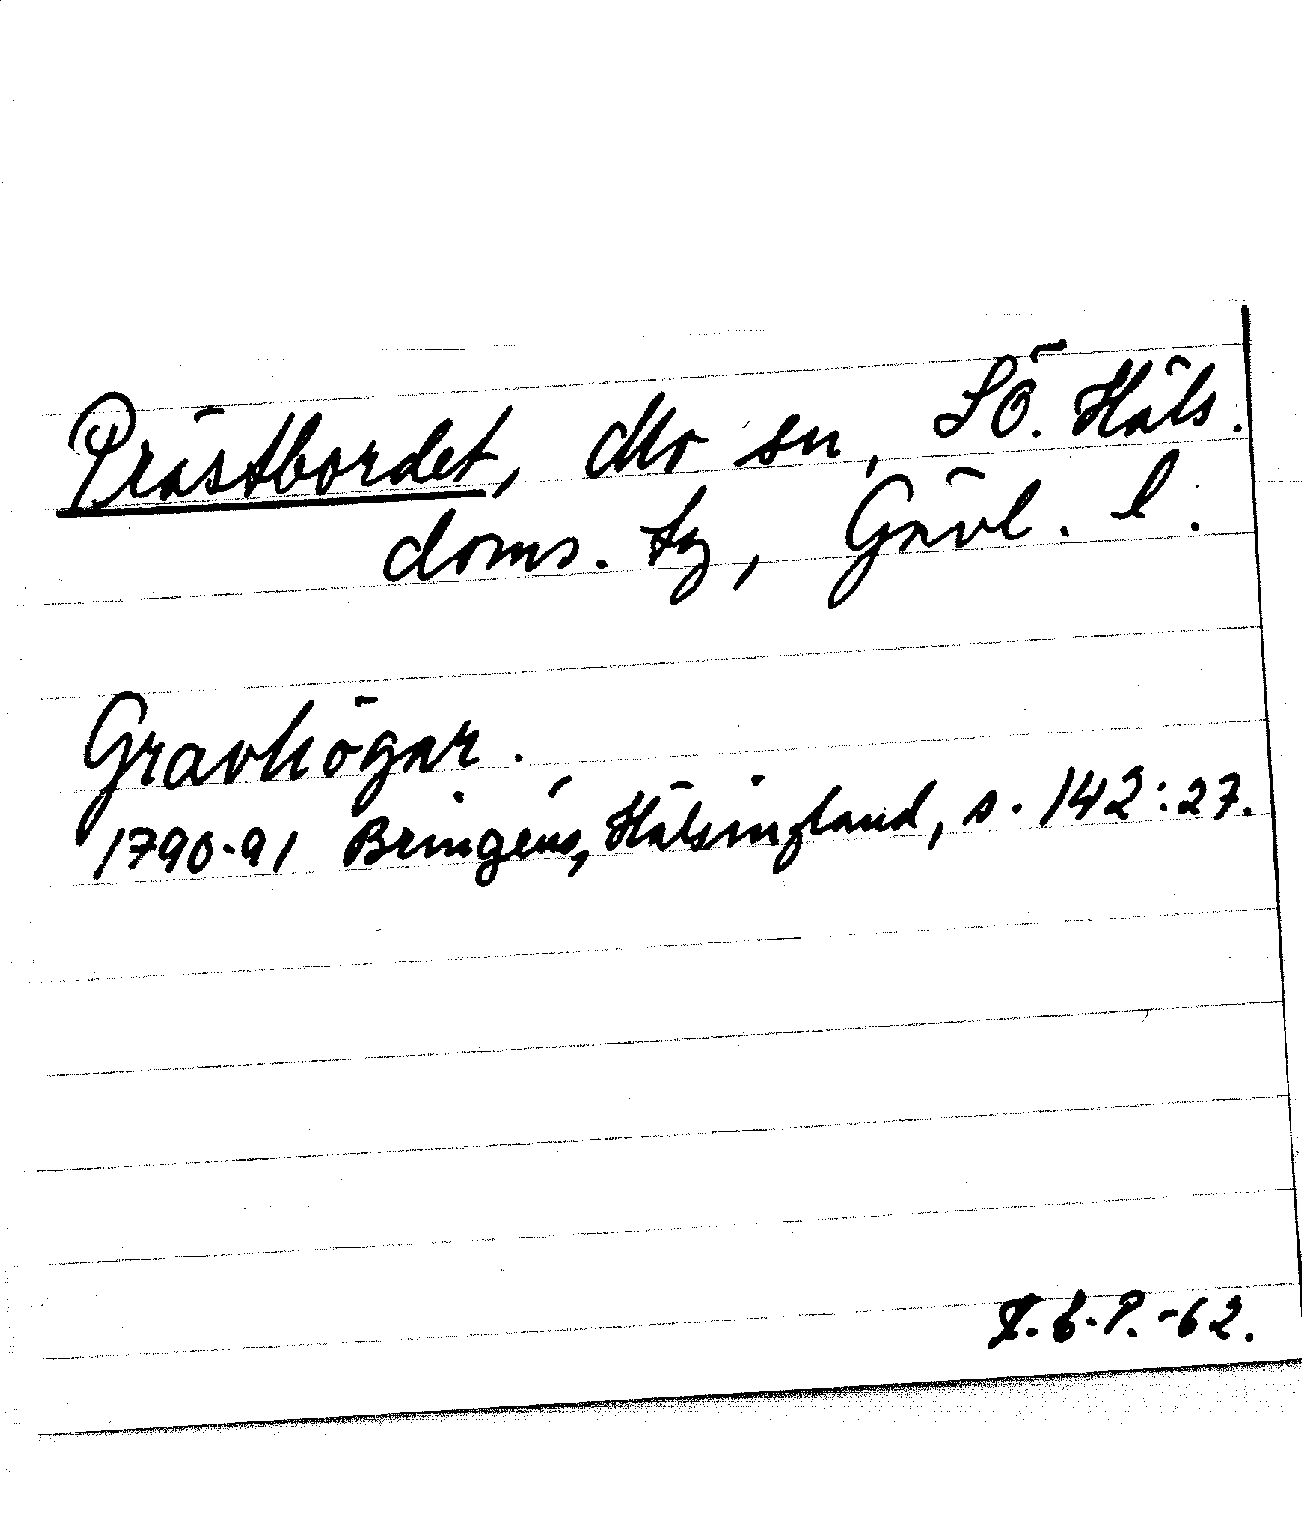 Prästbordet, Mo sn, SÖ. Häls.
doms. sg, Gävl. l.
Gravhögar.
1790-91 Bringéus, Hälsingland, s. 142:27.
-62.